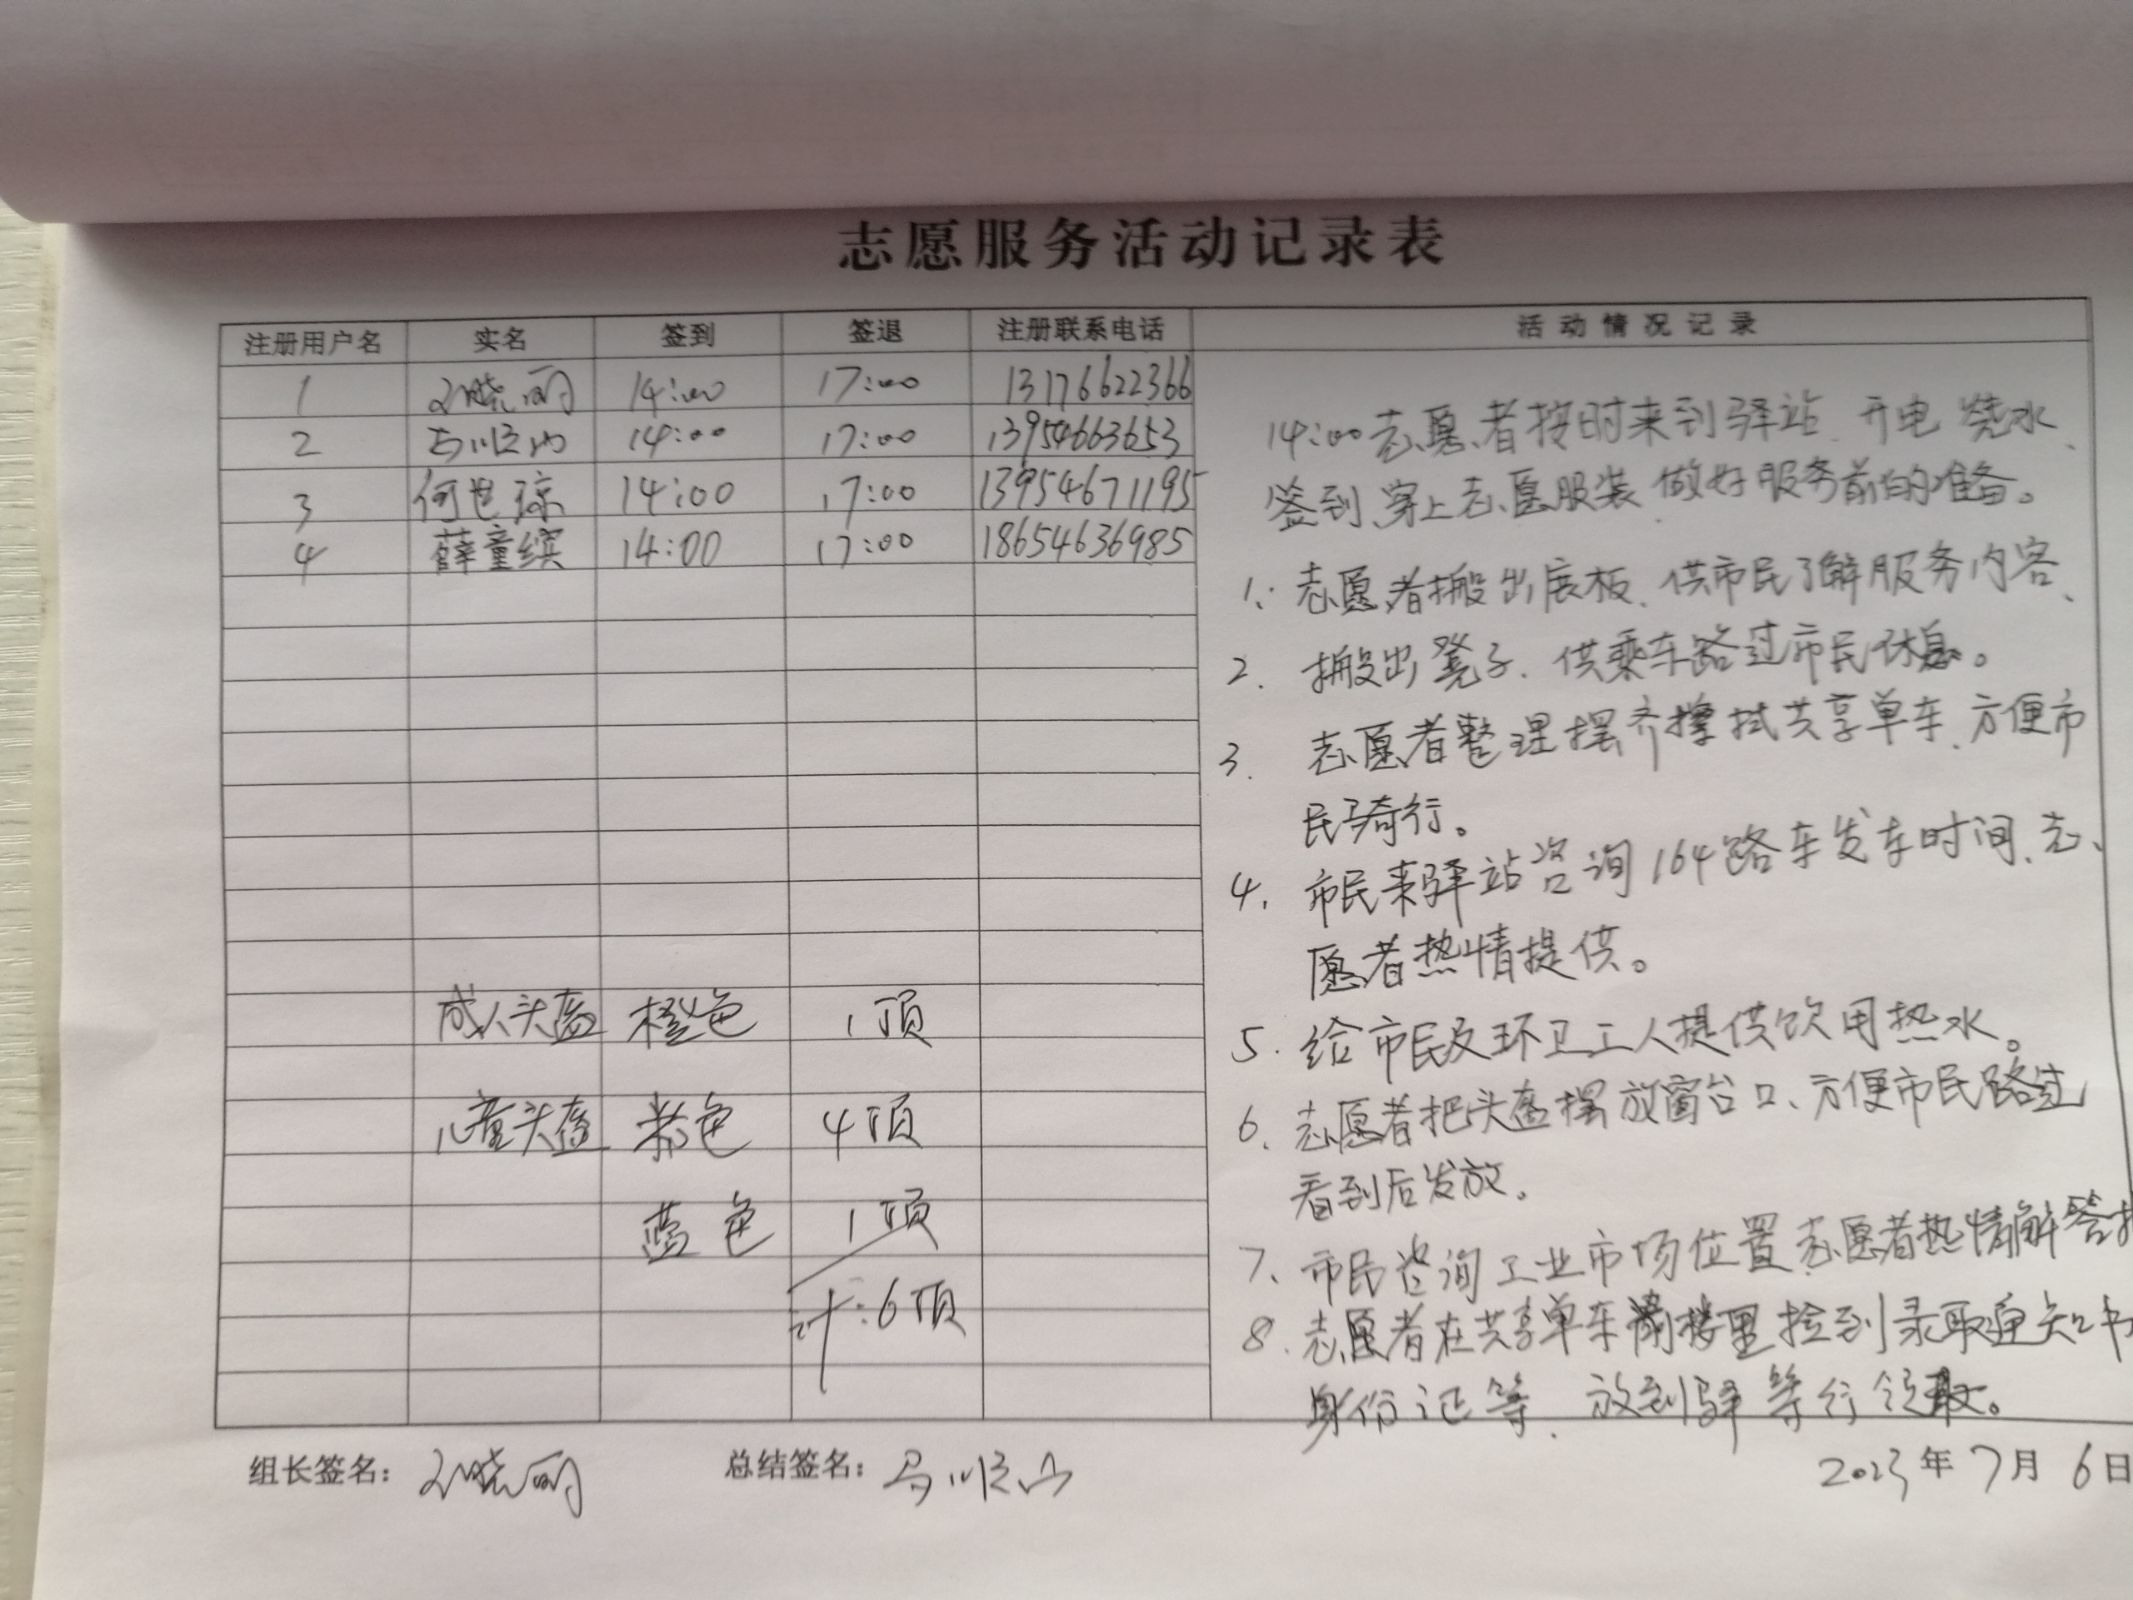 志愿服务活动记录表
注册用户名 实名 签到 签退 注册联系电话 活动情况记录
1 晓丽 14:00 17:00 13176622366
2 马顺山 14:00 17:00 13954663653
3 何世琼 14:00 17:00 13954671195
4 薛童缤 14:00 17:00 18654636985
成人头盔 橙色 1顶
儿童头盔 紫色 4顶
蓝色 1顶
计:6顶
14:00志愿者按时来到驿站、开电烧水、
签到、穿上志愿服装、做好服务前的准备。
1、志愿者搬出展板、供市民了解服务内容、
2、搬出凳子、供乘车路过市民休息。
3、志愿者整理摆齐擦拭共享单车、方便市
民骑行。
4、市民来驿站咨询164路车发车时间、志
愿者热情提供。
5、给市民及环卫工人提供饮用热水。
6、志愿者把头盔摆放窗台口、方便市民路过
看到后发放。
7、市民咨询工业市场位置志愿者热情解答
8、志愿者在共享单车里捡到录取通知书
身份证等、放到驿等行领取。
组长签名: 晓丽 总结签名: 马顺山 2023年7月6日